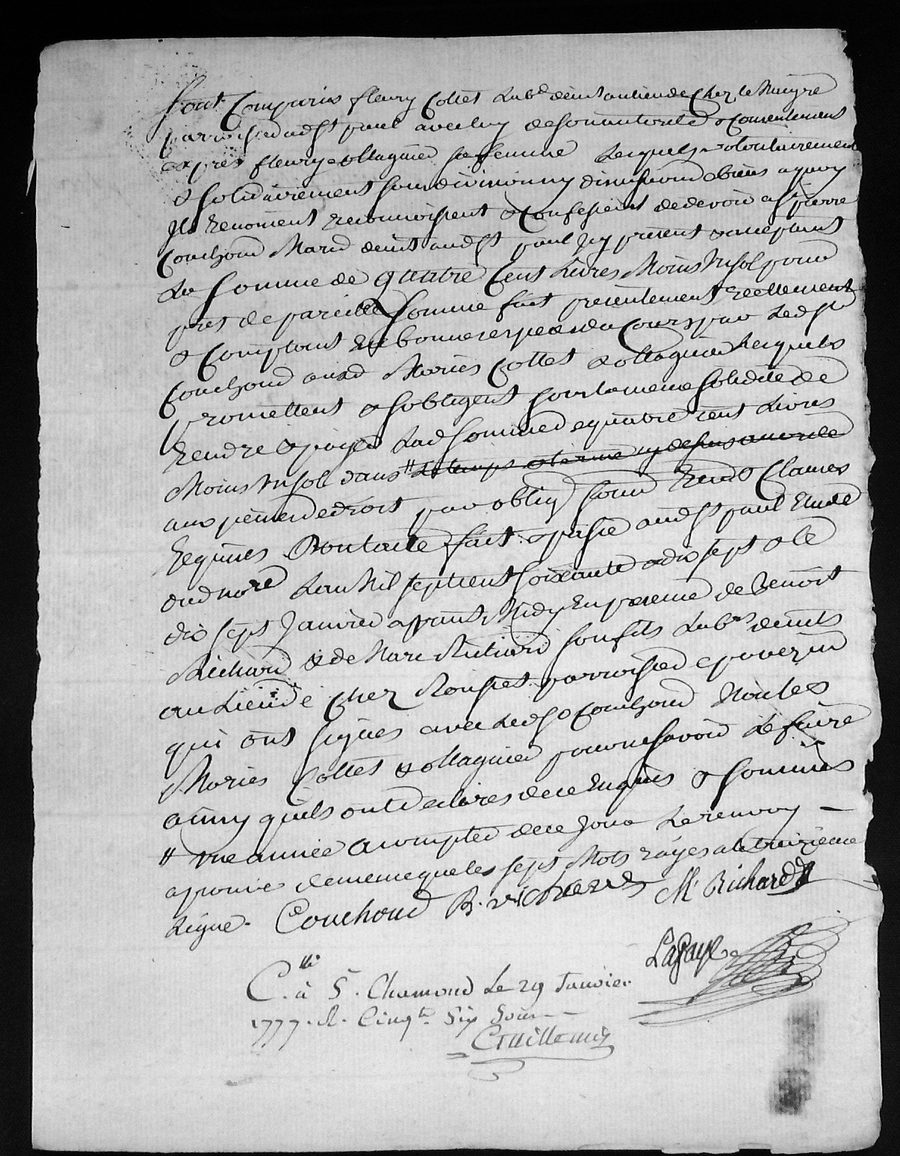 Sont Comparus fleury Collet Lab.r demt au lieu de Chez le
parroisse dudt St paul avec luy de son autorité & Consentement
exprès fleurye ollagnier sa femme Lesquels volontairement
& solidairement sans division ny discussion de biens a quoy
ils renoncent reconnoissent & Confessent de devoir a Sr pierre
Couchoud Mard demt audt St paul Icy présent & acceptant
La Somme de quatre Cent Livres Moins un sol pour
prest de pareille Somme fait présentement réellement
& Comptant en bonnes espèces du Cours par Ledt Sr
Couchoud auxd Mariés Collet & ollagnier Lesquels
promettent & s'obligent sous la meme solidité de
Rendre & payer Lad Somme de quatre cent Livres
Moins un sol dans // Le temps & terme
aux peines de droit par oblign soum Renon Clauses
Requises Dont acte fait & passé audt St paul Etude
dud nore L'an Mil sept cent soixante & dix sept & le
dix sept Janvier après Midy En presence de Benoit
Richard & de Marc Richard son fils Labrs demts
au Lieu de Chez parroisse
qui ont signés avec Ledt Sr Couchoud Non Les
Mariés Collet & ollagnier pour ne savoir Le faire
ainsy qu'ils ont déclarés de ce Enquis & sommés
// une année a compter de ce Jour Le renvoy —
aprouvé de meme que les sept Mots rayés a la treizieme
Ligne. Couchoud B. richard M. Richard
Lafaye
C.lle à St. Chamond Le 29 Janvier
1777. R. Cinq te Six Sous